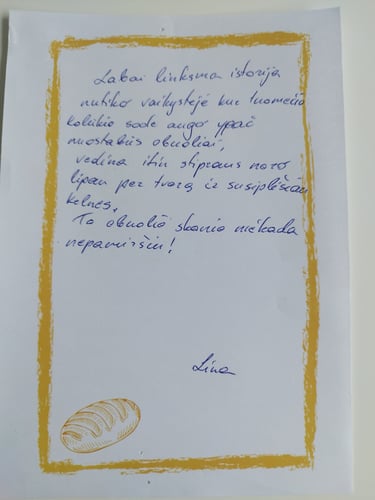 Labai linksma istorija
nutiko vaikystėje kur tuomečio
kolūkio sode augo ypač
nuostabūs obuoliai,
vedina itin stipraus noro
lipau per tvorą ir susiplėšiau
kelnes.
To obuolio skonio niekada
nepamiršiu!
Lina